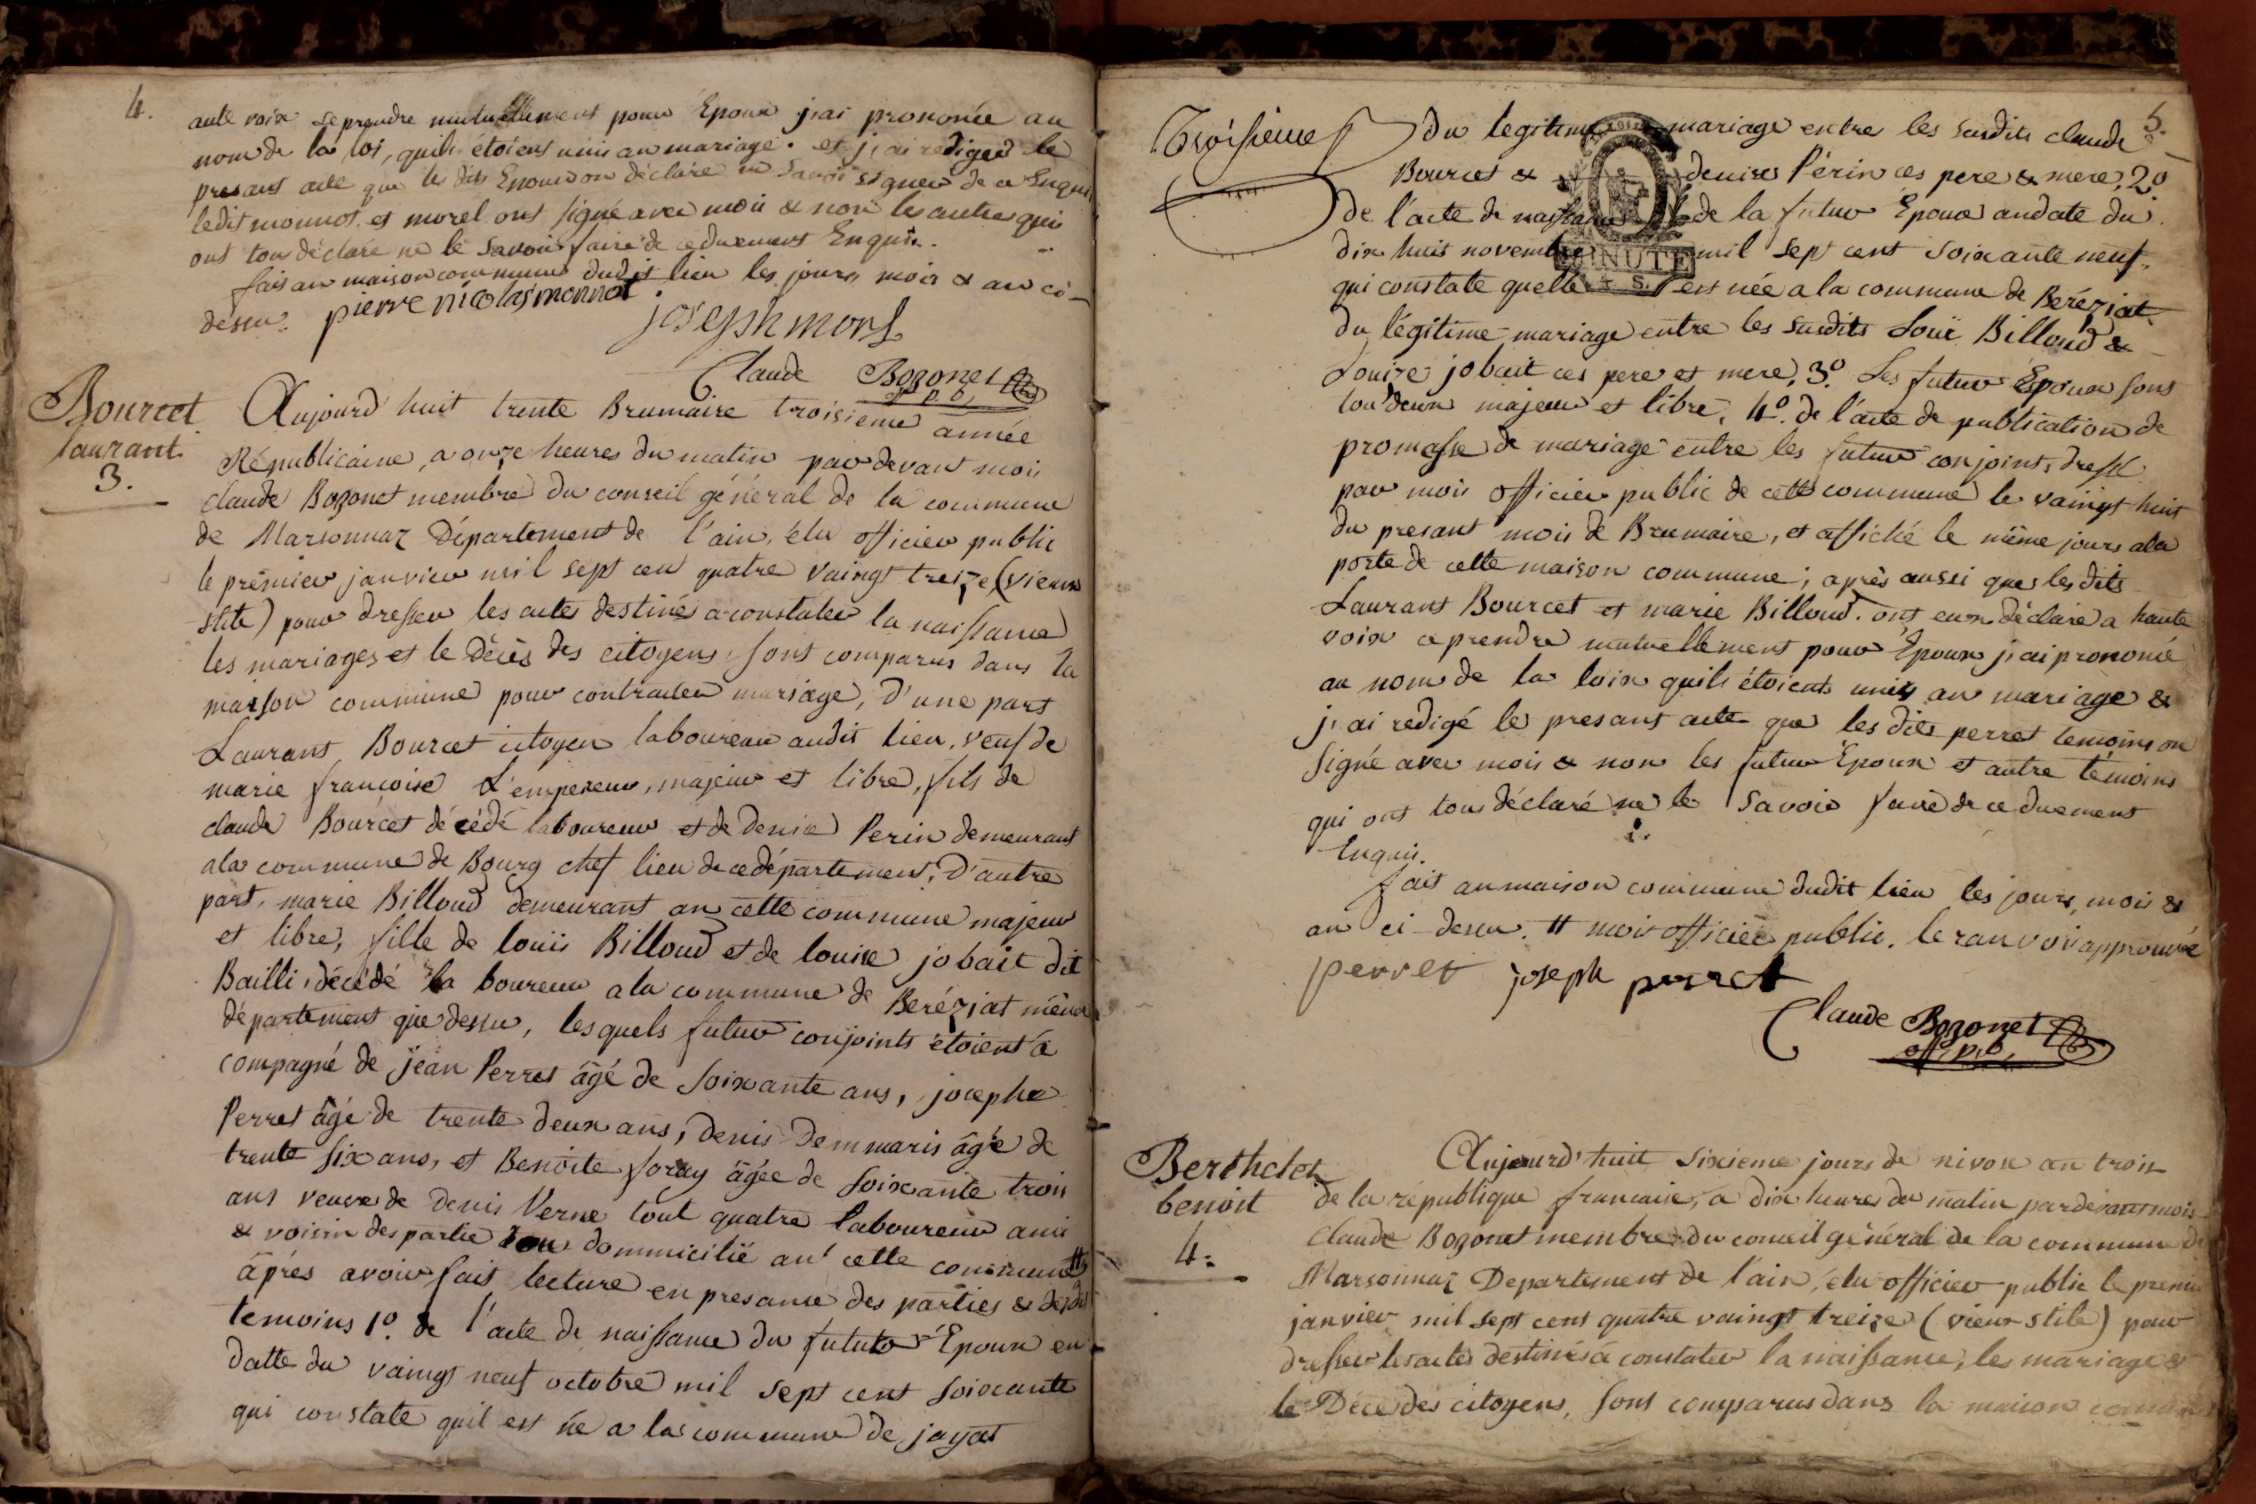 4.
aute voix se prendre mutuellement pour Epoux j'ai prononcée au
nom de la loi, quils étoient unis an mariage. et j'ai redigeé le
presant acte que les dits Epoux on déclaré ne savoir signer de ce Enquis
ledit monnot et morel ont signé avec moi & non les autres qui
ont tous déclaré ne le savoir faire de ce duement Enquis.
fait an maison commune dudit lieu les jours mois & an ci-
dessu. pierre nicolas monnot
joseph morel
Claude Bozonet
off. p. b.
Bourcet
laurant.
3.
Aujourd'huit trente Brumaire troisieme année
Républicaine, a onze heures du matin par devant moi
claude Bozonet membre du conseil général de la commune
de Marsonnaz Département de l'ain, élu officier public
le prémier janvier mil sept cent quatre vaingt treize (vieux
stite) pour dresser les actes destinés a constater la naissance
les mariages et le Décès des citoyens, sont comparus dans la
maison commune pour contracter mariage, d'une part
Laurant Bourcet citoyen laboureur audit lieu, veuf de
marie francoise L'empereur, majeur et libre, fils de
claude Bourcet décédé laboureur et de Denise Perin demeurant
a la commune de Bourg chef lieu de ce département, D'autre
part, marie Billoud demeurant an cette commune majeur
et libre, fille de louis Billoud et de louise jobait dit
Bailli, décédé la boureur a la commune de Beréziat même
département que dessu, lesquels futur conjoints étoient a
compagné de jean Perret âgé de soixante ans, josephe
Perret âgé de trente deux ans, Denis Dommaris âgé de
trente six ans, et Benoite foray âgée de soixante trois
ans veuve de Denis Verne tout quatre laboureur ami
& voisin des partie tou dommicilié an cette commune #
âprés avoir fait lecture en presance des parties & desdit
temoins 1º. de l'acte de naissance du futur Epoux en
datte du vaingt neuf octobre mil sept cent soixante
qui constate quil est né a la commune de jayat
5.
Troisieme
du legitime mariage entre les susdits claude
Bourcet & denise Périn ces pere & mere, 2º
de l'acte de naissance de la futur Epouse an date du
dix huit novembre mil sept cent soixante neuf,
MINUTE
qui constate quelle est née a la commune de Beréziat
du légitime mariage entre les susdits Loui Billoud &
Louise jobait ces pere et mere, 3º. Les futur Epoux sont
tou deux majeur et libre, 4º. de l'acte de publication de
promesse de mariage entre les futur conjoints, dressé
par moi officier public de cette commune le vaingt huit
du presant mois de Brumaire, et affiché le même jours a la
porte de cette maison commune; après aussi que les dits
Laurant Bourcet et marie Billoud. ont eux déclaré a haute
voix ce prendre mutuellement pour Epoux j'ai prononcé
au nom de la loix quils étoient unis an mariage &
j'ai redigé le presant acte que les dits perret temoins on
signé avec moi & non les futur Epoux et autre témoins
qui ont tous déclaré ne le savoir faire de ce duement
Enquis.
fait an maison commune dudit lieu les jours, mois &
an ci-dessu. # moi officiée public. le ranvoi approuvée
perret joseph perret
Claude Bozonet
off. p. b.
Berthelet
benoit
4.
Aujourd'huit sixieme jours de nivose an trois
de la république francaise, a dix heures du matin pardevant moi
Claude Bozonet membre du conseil général de la commune de
Marsonnaz Departement de l'ain, élu officier public le premier
janvier mil sept cent quatre vaingt treize (vieux stile) pour
dresser les actes destinés a constater la naissance, les mariage &
le Décé des citoyens, sont comparus dans la maison commune